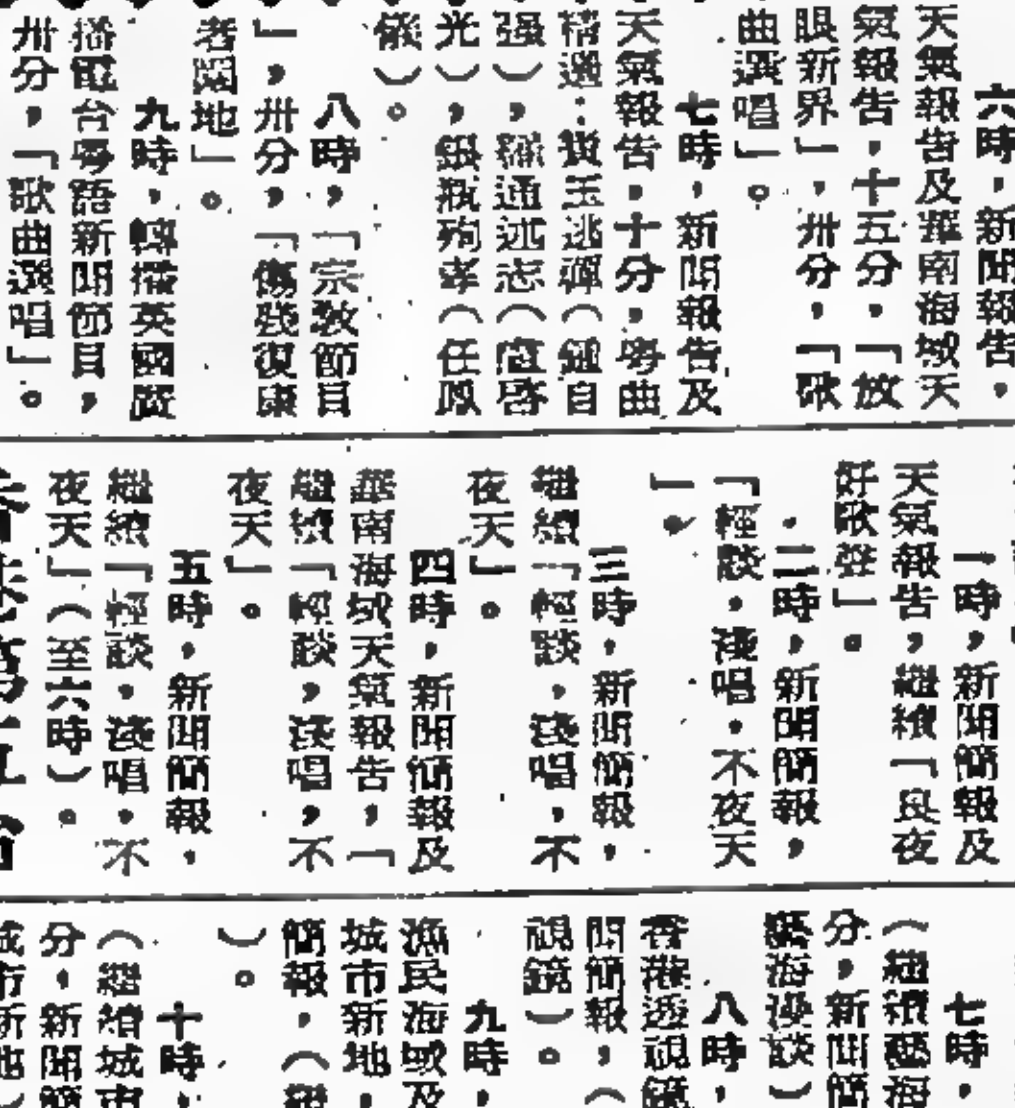 六時，新聞報告，
天氣報告及華南海域天
氣報告，十五分，「放
眼新界」，卅分，「歌
曲選唱」。
七時，新聞報告及
天氣報告，十分，粵曲
精選：寶玉逃禪（鍾自
強），通述志（
光），銀瓶殉孝（任鳳
儀）。
八時，「宗教節目
」，卅分，「傷殘復康
者園地」。
九時，轉播英國廣
播電台粵語新聞節目，
卅分，「歌曲選唱」。
一時，新聞簡報及
天氣報告，繼續「良夜
好歌聲」。
二時，新聞簡報，
「輕談，淺唱，不夜天
」。
三時，新聞簡報，
繼續「輕談，淺唱，不
夜天」。
四時，新聞簡報及
華南海域天氣報告，「
繼續「輕談，淺唱，不
夜天」。
五時，新聞簡報，
繼續「輕談，淺唱，不
夜天」（至六時）。
七時，
（繼續藝海
分，新聞簡
藝海漫談）
八時，
香港透視鏡
聞簡報，（
視鏡）。
九時，
漁民海域及
城市新地，
簡報，（
）。
十時，
（繼續城市
分，新聞簡
城市新地）